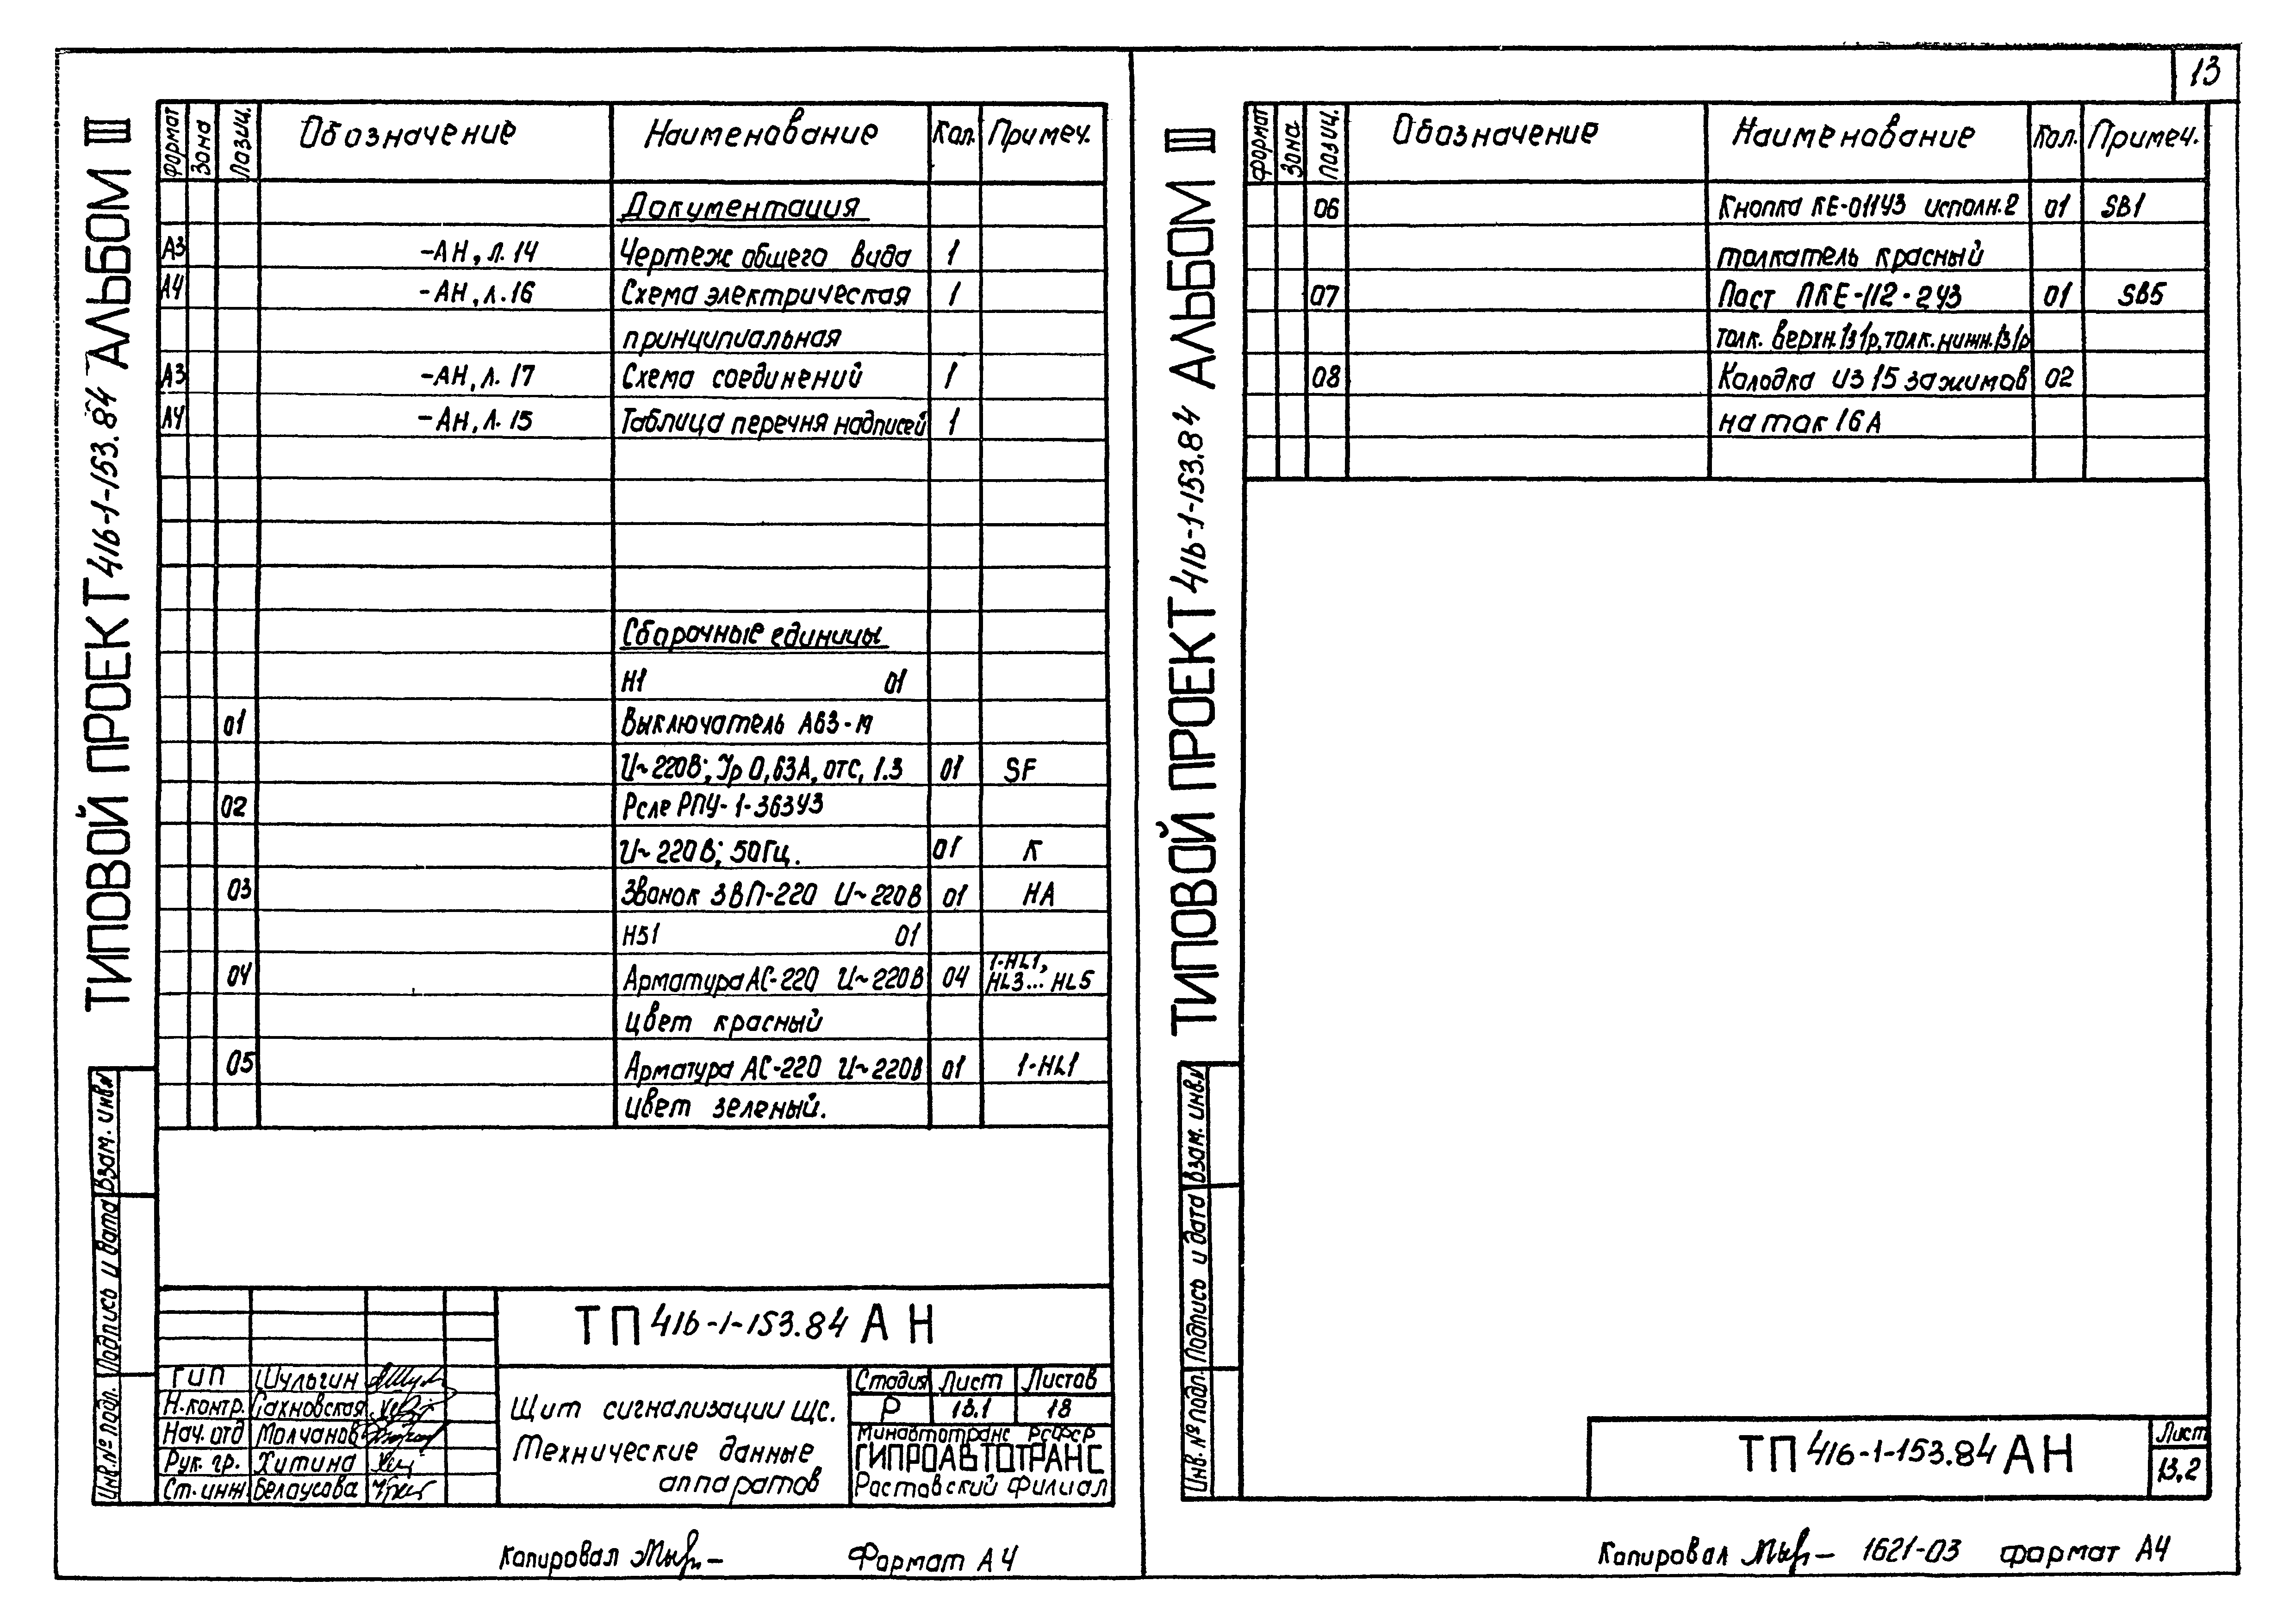 13
ТИПОВОЙ ПРОЕКТ 416-1-153.84 АЛЬБОМ III
Формат Зона Позиц. Обозначение Наименование Кол. Примеч.
Документация
А3 -АН, л. 14 Чертеж общего вида 1
А4 -АН, л. 16 Схема электрическая 1
принципиальная
А3 -АН, л. 17 Схема соединений 1
А4 -АН, л. 15 Таблица перечня надписей 1
Сборочные единицы
Н1 01
01 Выключатель А63-М
U~220В; Iр 0,63А, отс, 1.3 01 SF
02 Реле РПУ-1-363У3
U~220В; 50Гц. 01 К
03 Звонок ЗВП-220 U~220В 01 НА
Н51 01
04 Арматура АС-220 U~220В 04 1-HL1,
HL3... HL5
цвет красный
05 Арматура АС-220 U~220В 01 1-HL1
цвет зеленый.
Взам. инв.№
Подпись и дата
Инв.№ подл.
ТП 416-1-153.84 АН
ГИП Шульгин
Н.контр. Сахновская
Нач. отд Молчанов
Рук. гр. Хитина
Ст. инж Белоусова
Щит сигнализации ЩС.
Технические данные
аппаратов
Стадия Лист Листов
Р 13.1 18
Минавтотранс РСФСР
ГИПРОАВТОТРАНС
Ростовский Филиал
Копировал Формат А4
ТИПОВОЙ ПРОЕКТ 416-1-153.84 АЛЬБОМ III
Формат Зона Позиц. Обозначение Наименование Кол. Примеч.
06 Кнопка КЕ-011У3 исполн. 2 01 SB1
толкатель красный
07 Пост ПКЕ-112-2У3 01 SB5
толк. верхн. 1з1р, толк. нижн. 1з1р
08 Колодка из 15 зажимов 02
на ток 16А
Взам. инв.№
Подпись и дата
Инв.№ подл.
ТП 416-1-153.84 АН
Лист
13,2
Копировал 1621-03 формат А4